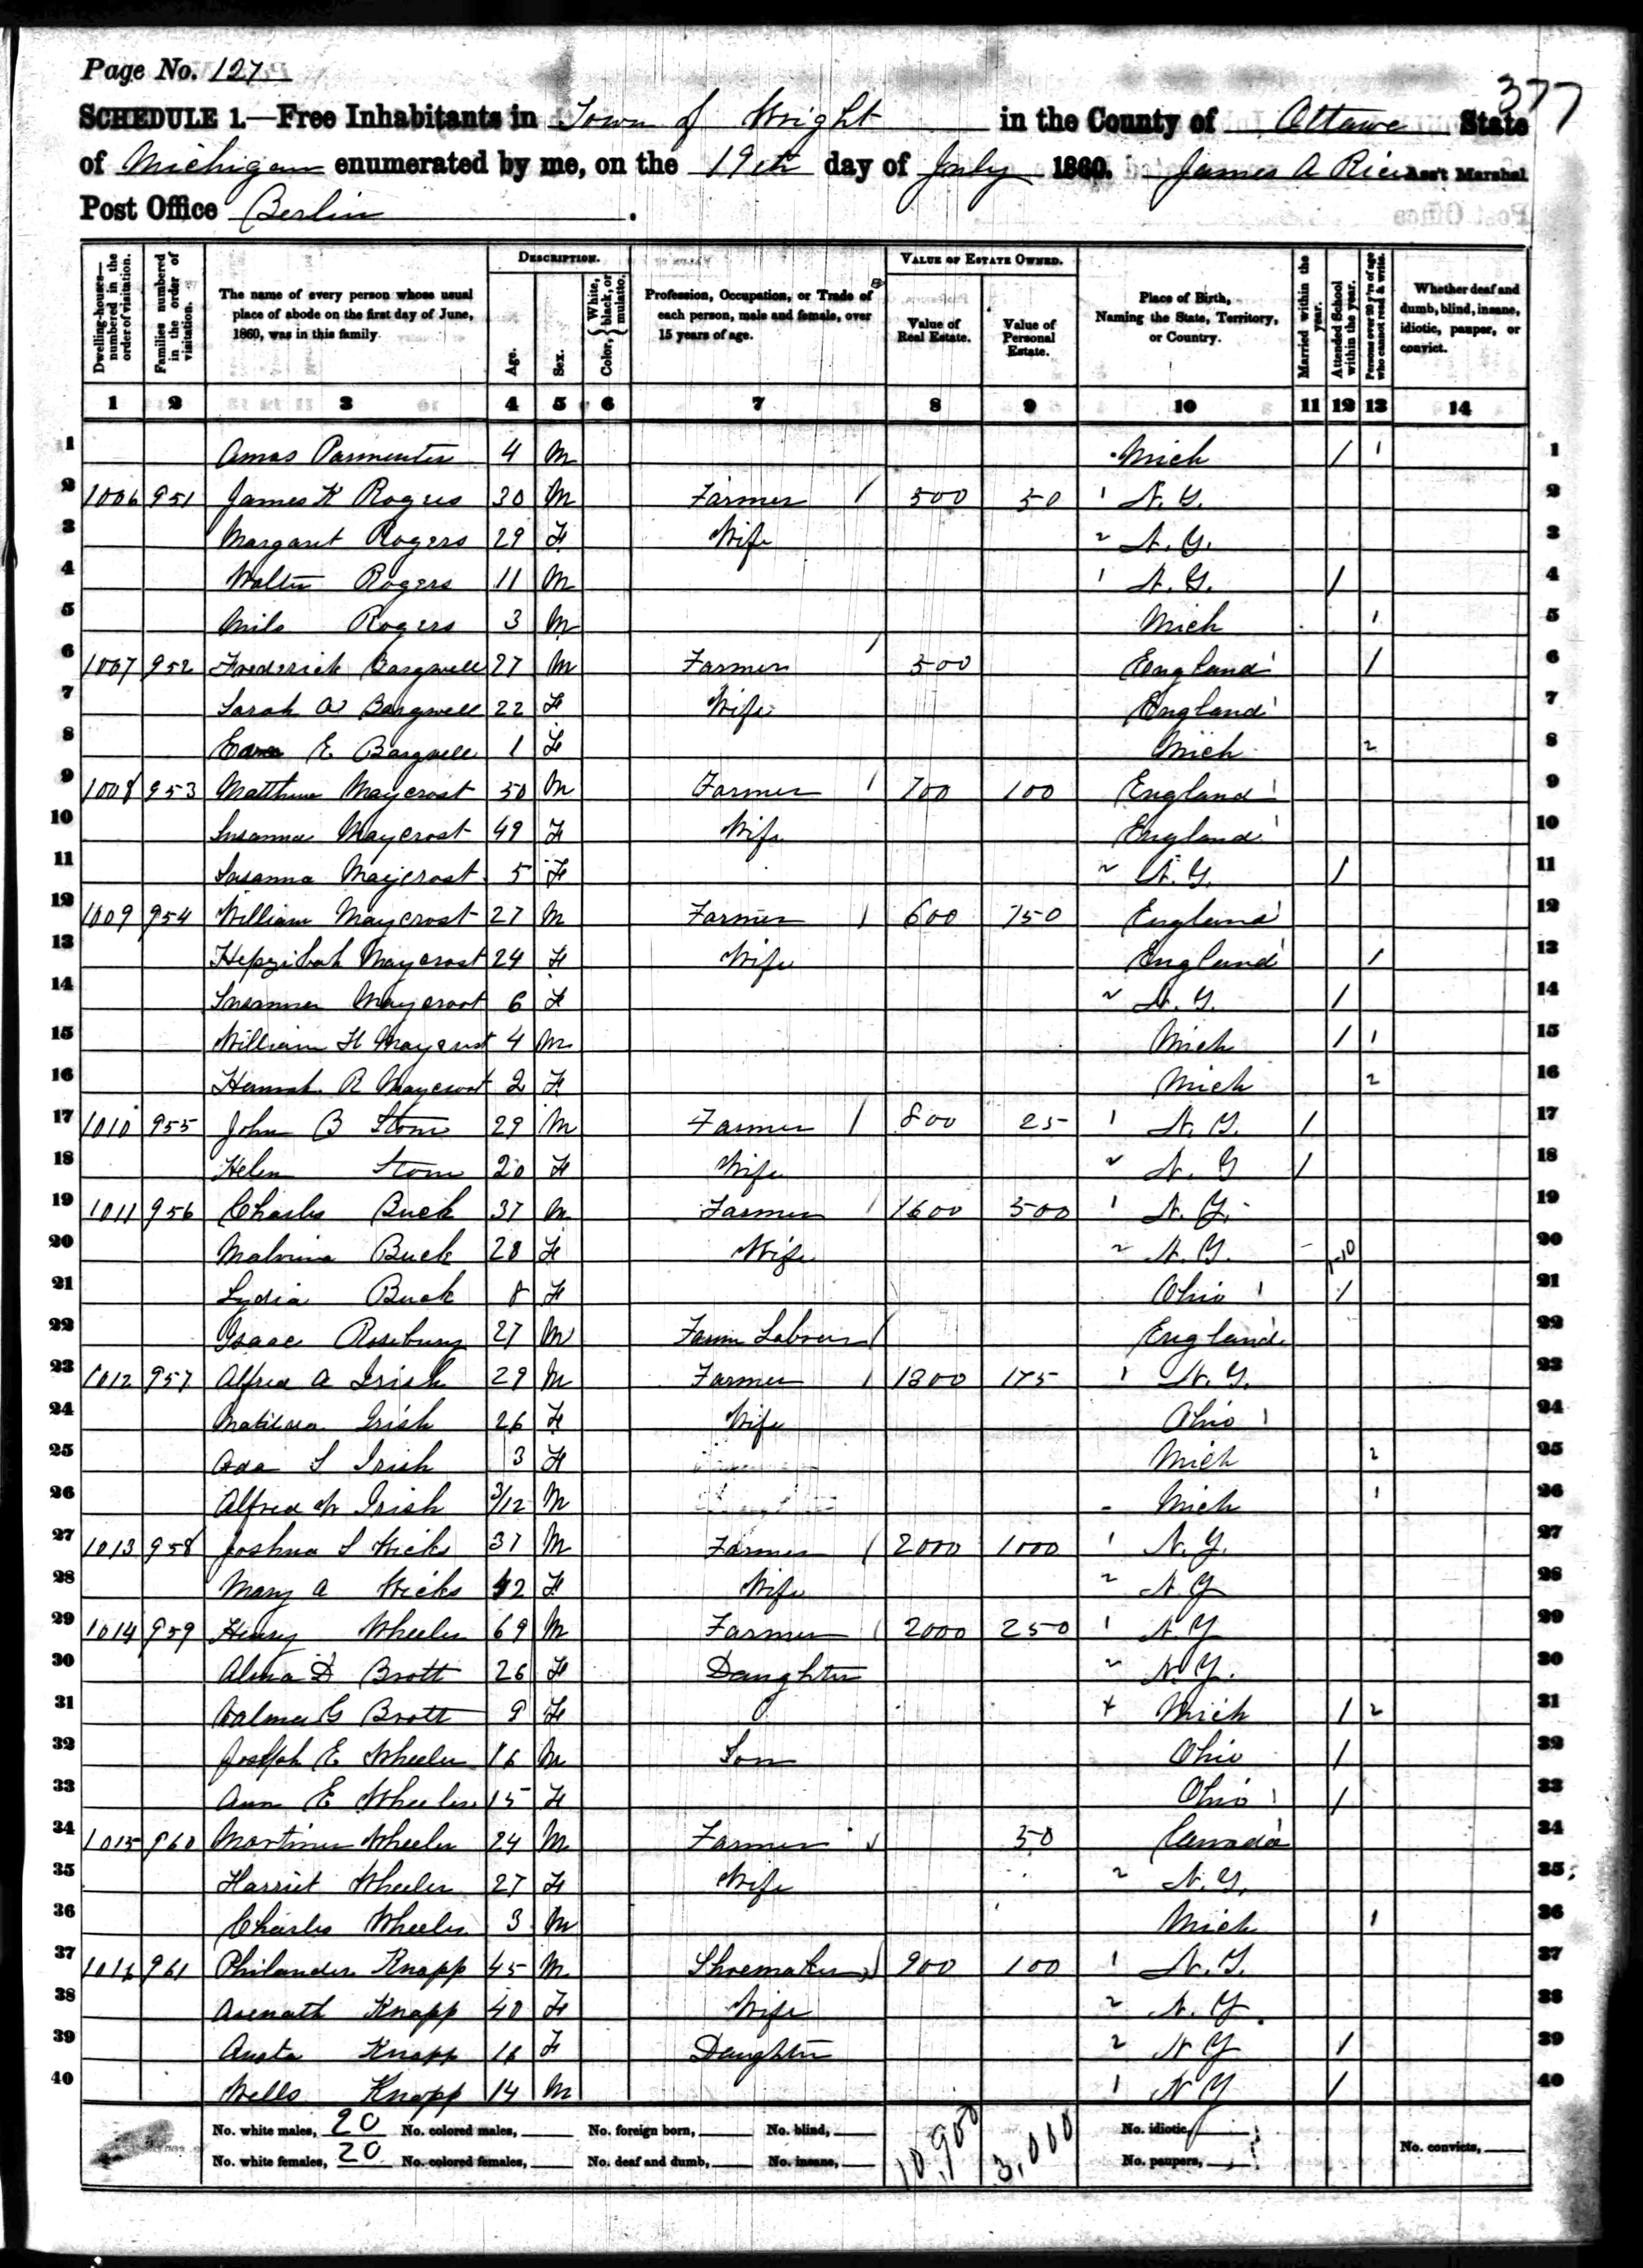 Page No. 127
377
SCHEDULE 1.—Free Inhabitants in Town of Wright in the County of Ottawa State
of Michigan enumerated by me, on the 19th day of July 1860. James A Rice Ass't Marshal
Post Office Berlin.
Dwelling-houses—numbered in the order of visitation.
Families numbered in the order of visitation.
The name of every person whose usual place of abode on the first day of June, 1860, was in this family.
DESCRIPTION.
Age.
Sex.
Color, { White, black, or mulatto.
Profession, Occupation, or Trade of each person, male and female, over 15 years of age.
VALUE OF ESTATE OWNED.
Value of Real Estate.
Value of Personal Estate.
Place of Birth, Naming the State, Territory, or Country.
Married within the year.
Attended School within the year.
Persons over 20 y'rs of age who cannot read & write.
Whether deaf and dumb, blind, insane, idiotic, pauper, or convict.
1 2 3 4 5 6 7 8 9 10 11 12 13 14
1 Amos Parmenter 4 M Mich / 1 1
2 1006 951 James K Rogers 30 M Farmer / 500 50 1 N.Y. 2
3 Margaret Rogers 29 F Wife 2 N.Y. 3
4 Walter Rogers 11 M 1 N.Y. / 4
5 Milo Rogers 3 M Mich 1 5
6 1007 952 Frederick Bargwell 27 M Farmer / 500 England 1 / 6
7 Sarah A Bargwell 22 F Wife England 1 7
8 E Bargwell 1 F Mich 2 8
9 1008 953 Matthew Maycrost 50 M Farmer / 700 100 England 1 9
10 Susanna Maycrost 49 F Wife England 1 10
11 Susanna Maycrost 5 F 2 N.Y. / 11
12 1009 954 William Maycrost 27 M Farmer / 600 150 England 1 12
13 Hepzibah Maycrost 24 F Wife England 1 / 13
14 Susanna Maycrost 6 F 2 N.Y. / 14
15 William H Maycrost 4 M Mich / 1 15
16 Hannah R Maycrost 2 F Mich 2 16
17 1010 955 John B Stone 29 M Farmer / 800 25 1 N.Y. / 17
18 Helen Stone 20 F Wife 2 N.Y / 18
19 1011 956 Charles Buck 37 M Farmer / 1600 500 1 N.Y. 19
20 Malvina Buck 28 F Wife 2 N.Y. 20
21 Lydia Buck 8 F Ohio 1 / 21
22 Isaac Roseburg 27 M Farm Laborer / England 22
23 1012 957 Alfred A Irish 29 M Farmer / 1800 175 1 N.Y. 23
24 Matilda Irish 26 F Wife Ohio 1 24
25 Ada S Irish 3 F Mich 2 25
26 Alfred W Irish 3/12 M Mich 1 26
27 1013 958 Joshua S Hicks 37 M Farmer / 2000 1000 1 N.Y. 27
28 Mary A Hicks 42 F Wife 2 N.Y 28
29 1014 959 Henry Wheeler 69 M Farmer / 2000 250 1 N.Y 29
30 Alma D Brott 26 F Daughter 2 N.Y. 30
31 G Brott 9 F + Mich / 2 31
32 Joseph E Wheeler 16 M Son Ohio / 32
33 Ann E Wheeler 15 F Ohio 1 / 33
34 1015 960 Mortimer Wheeler 24 M Farmer 50 Canada 34
35 Harriet Wheeler 27 F Wife 2 N.Y. 35
36 Charles Wheeler 3 M Mich 1 36
37 1016 961 Philander Knapp 45 M Shoemaker 900 100 1 N.Y. 37
38 Asenath Knapp 40 F Wife 2 N.Y. 38
39 Austa Knapp 16 F Daughter 2 N.Y / 39
40 Wells Knapp 14 M 1 N Y / 40
No. white males, 20 No. colored males, No. foreign born, No. blind, 10,900 3,000 No. idiotic,
No. white females, 20 No. colored females, No. deaf and dumb, No. insane, No. paupers, No. convicts,